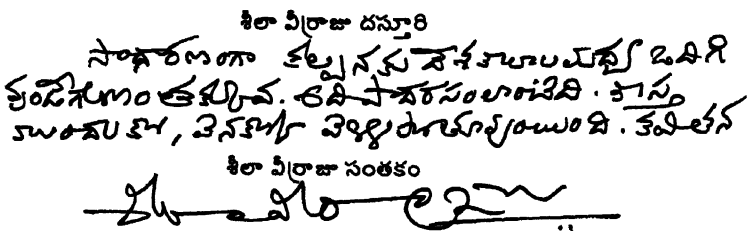 శీలా వీర్రాజు దస్తూరి
సాధారణంగా కల్పనకు దేశకాలాలమధ్య ఒదిగి
వుండేగుణం తక్కువ. అది పాదరసంలాంటిది. కాస్త
ముందుకో, వెనకకో వెళ్ళిపోతూవుంటుంది. కవితన
శీలా వీర్రాజు సంతకం